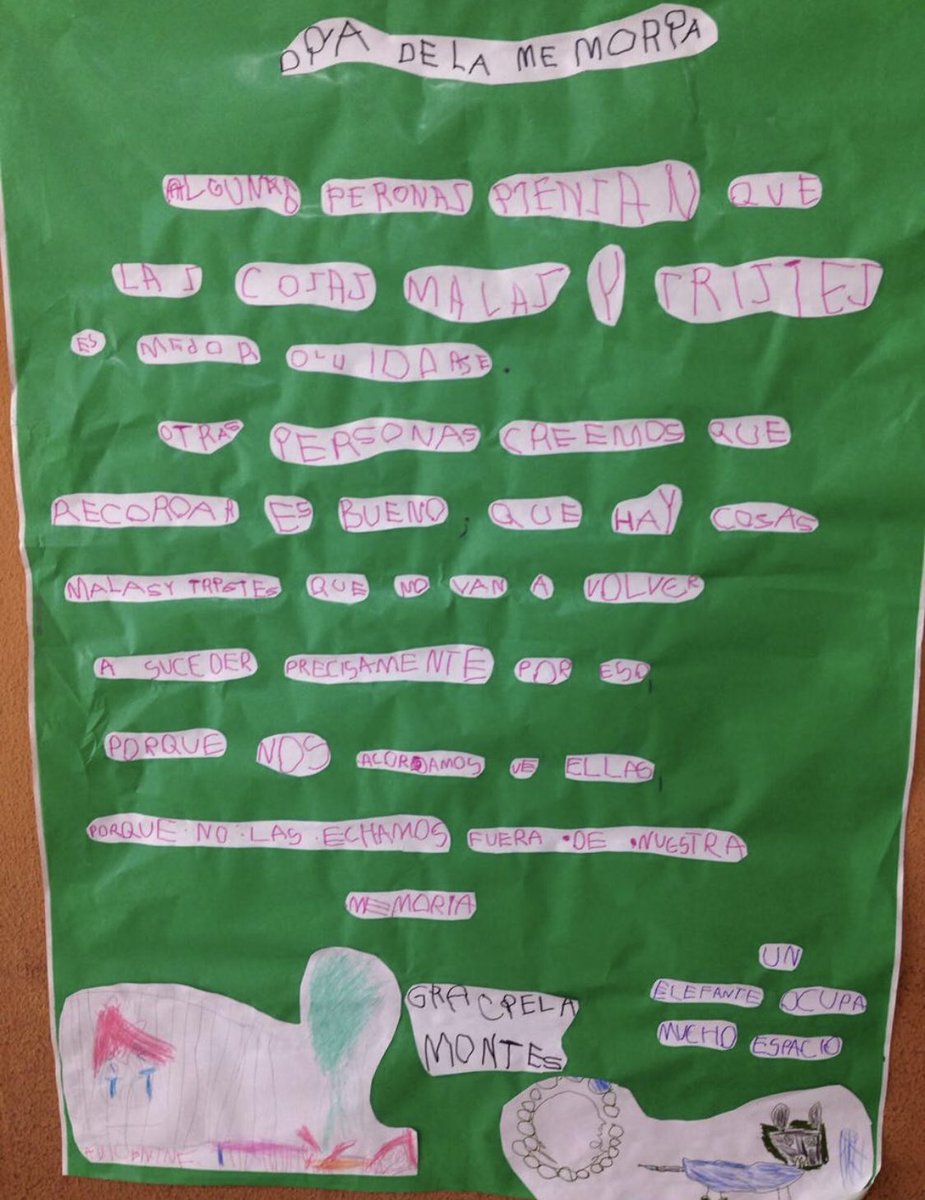 DIA DE LA MEMORIA
ALGUNAS PERONAS PIENSAN QUE
LAS COSAS MALAS Y TRISTES
ES MEJOR OLVIDARSE.
OTRAS PERSONAS CREEMOS QUE
RECORDAR ES BUENO; QUE HAY COSAS
MALAS Y TRISTES QUE NO VAN A VOLVER
A SUCEDER PRECISAMENTE POR ESO,
PORQUE NOS ACORDAMOS DE ELLAS,
PORQUE NO LAS ECHAMOS FUERA DE NUESTRA
MEMORIA
GRACIELA
MONTES
UN
ELEFANTE OCUPA
MUCHO ESPACIO